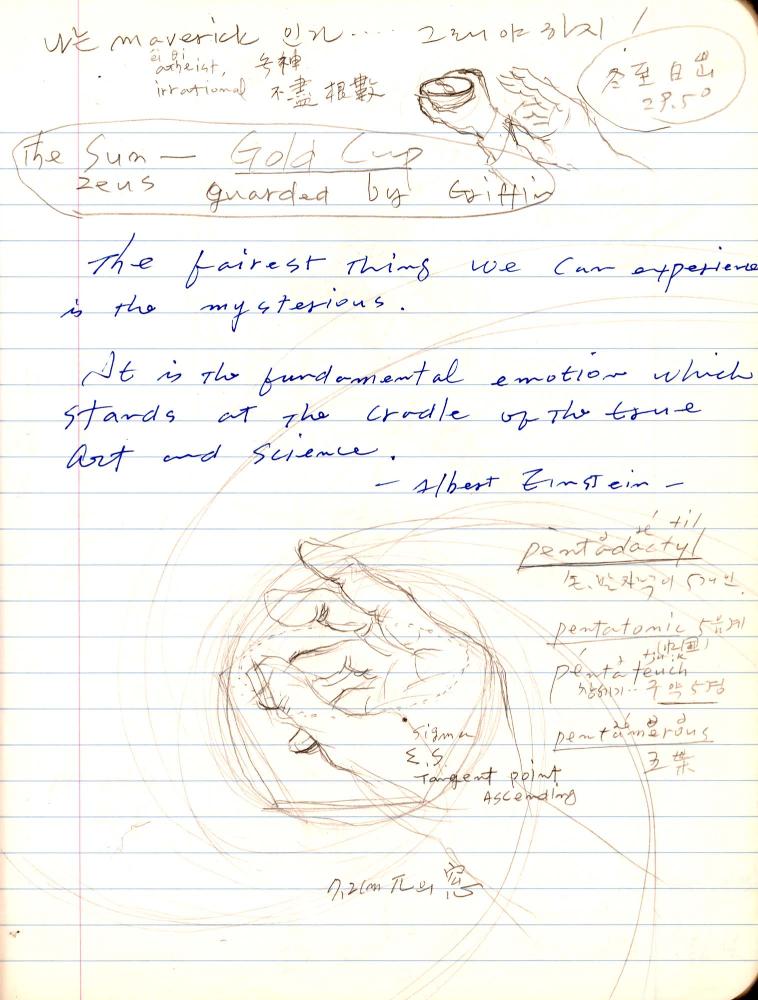 나는 maverick 인가..... 그래야 하지!
atheist, 无神
irrational 不盡根數
冬至 日出
29.50
The Sun — Gold Cup
zeus guarded by Griffin
The fairest thing we can experience
is the mysterious.
It is the fundamental emotion which
stands at the cradle of the true
Art and Science.
- Albert Einstein -
pentadactyl
손, 발가락이 5개인.
pentatonic 5음계
pentateuch
창세기.. 구약 5경
pentamerous
五葉
Sigma
Σ, S.
Tangent point
Ascending
7.2cm π의 窓